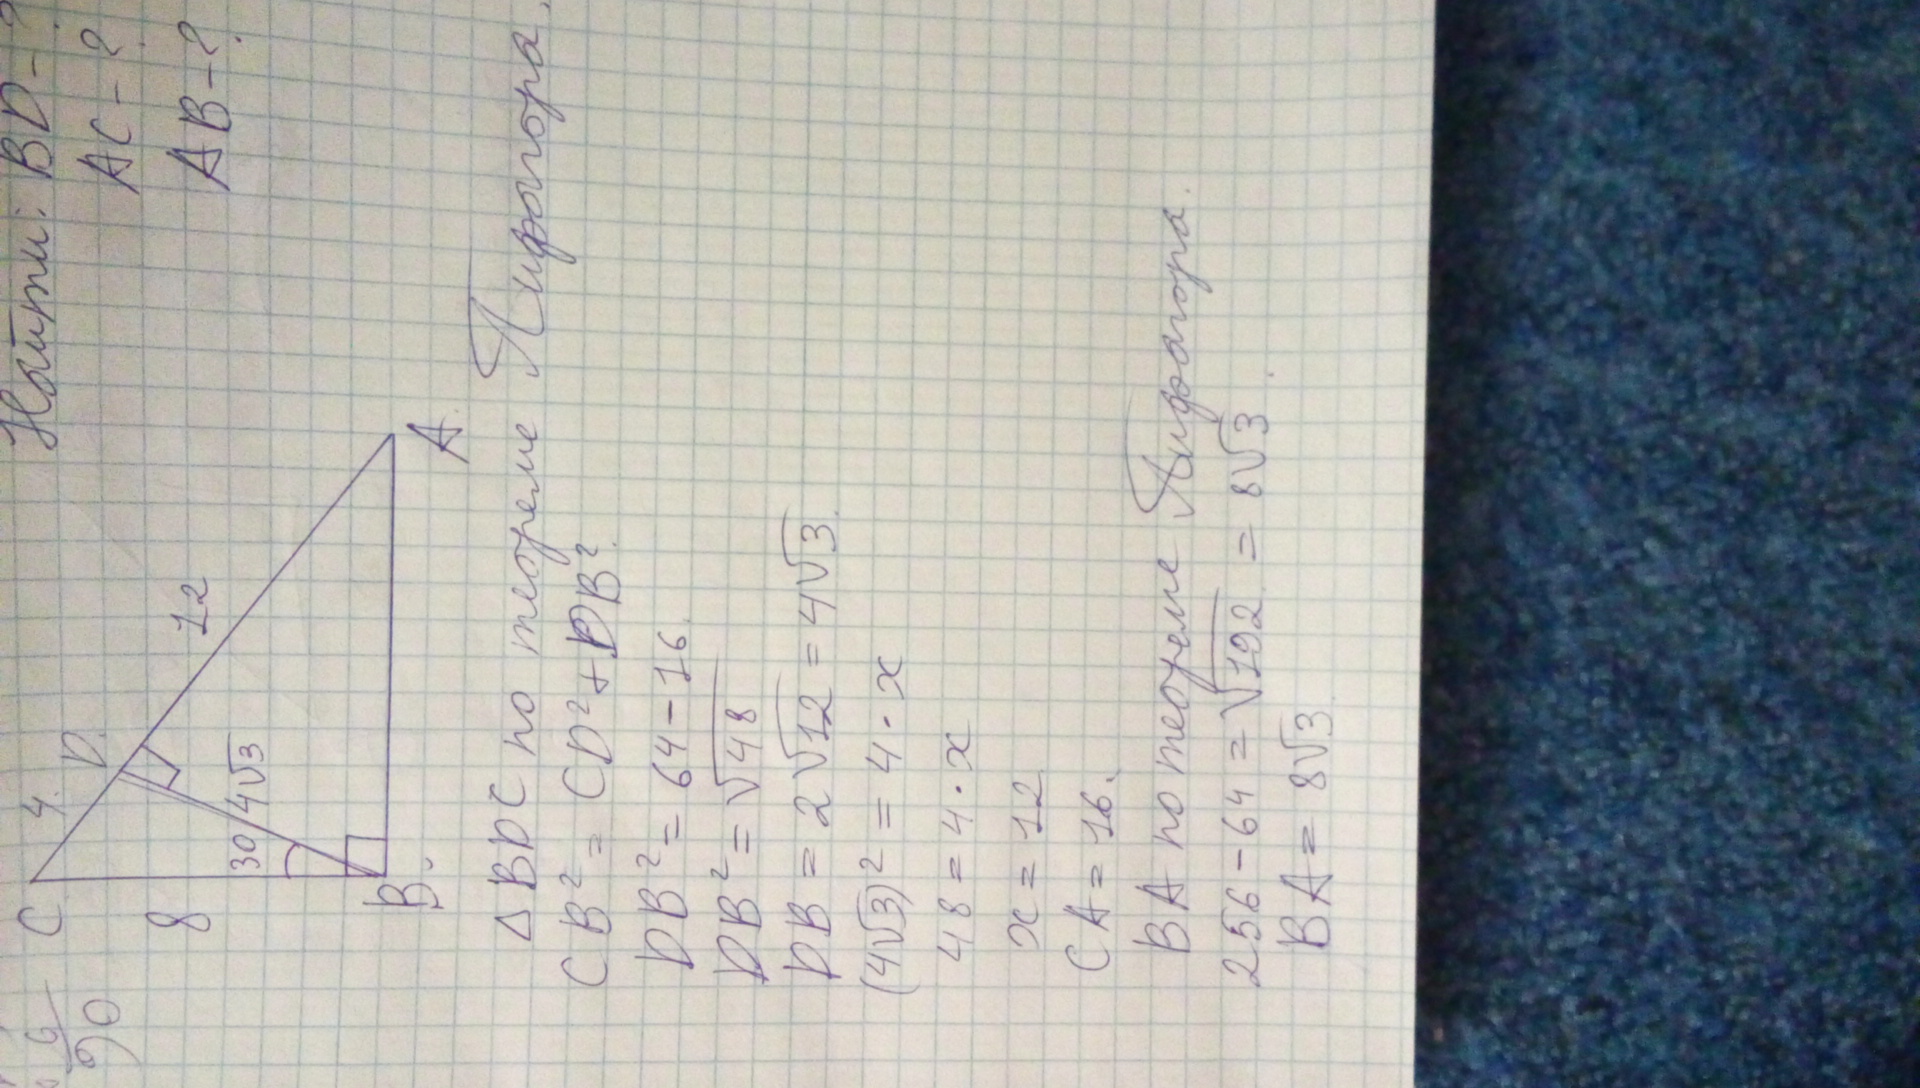 Найти: BD-?
AC-?
AB-?
C
4
D
12
8
30
4√3
B
A
△BDC по теореме Пифагора.
CB² = CD² + DB².
DB² = 64-16.
DB² = √48
DB = 2√12 = 4√3.
(4√3)² = 4·x
48 = 4·x
x = 12
CA = 16.
BA по теореме Пифагора.
256-64 = √192 = 8√3.
BA = 8√3